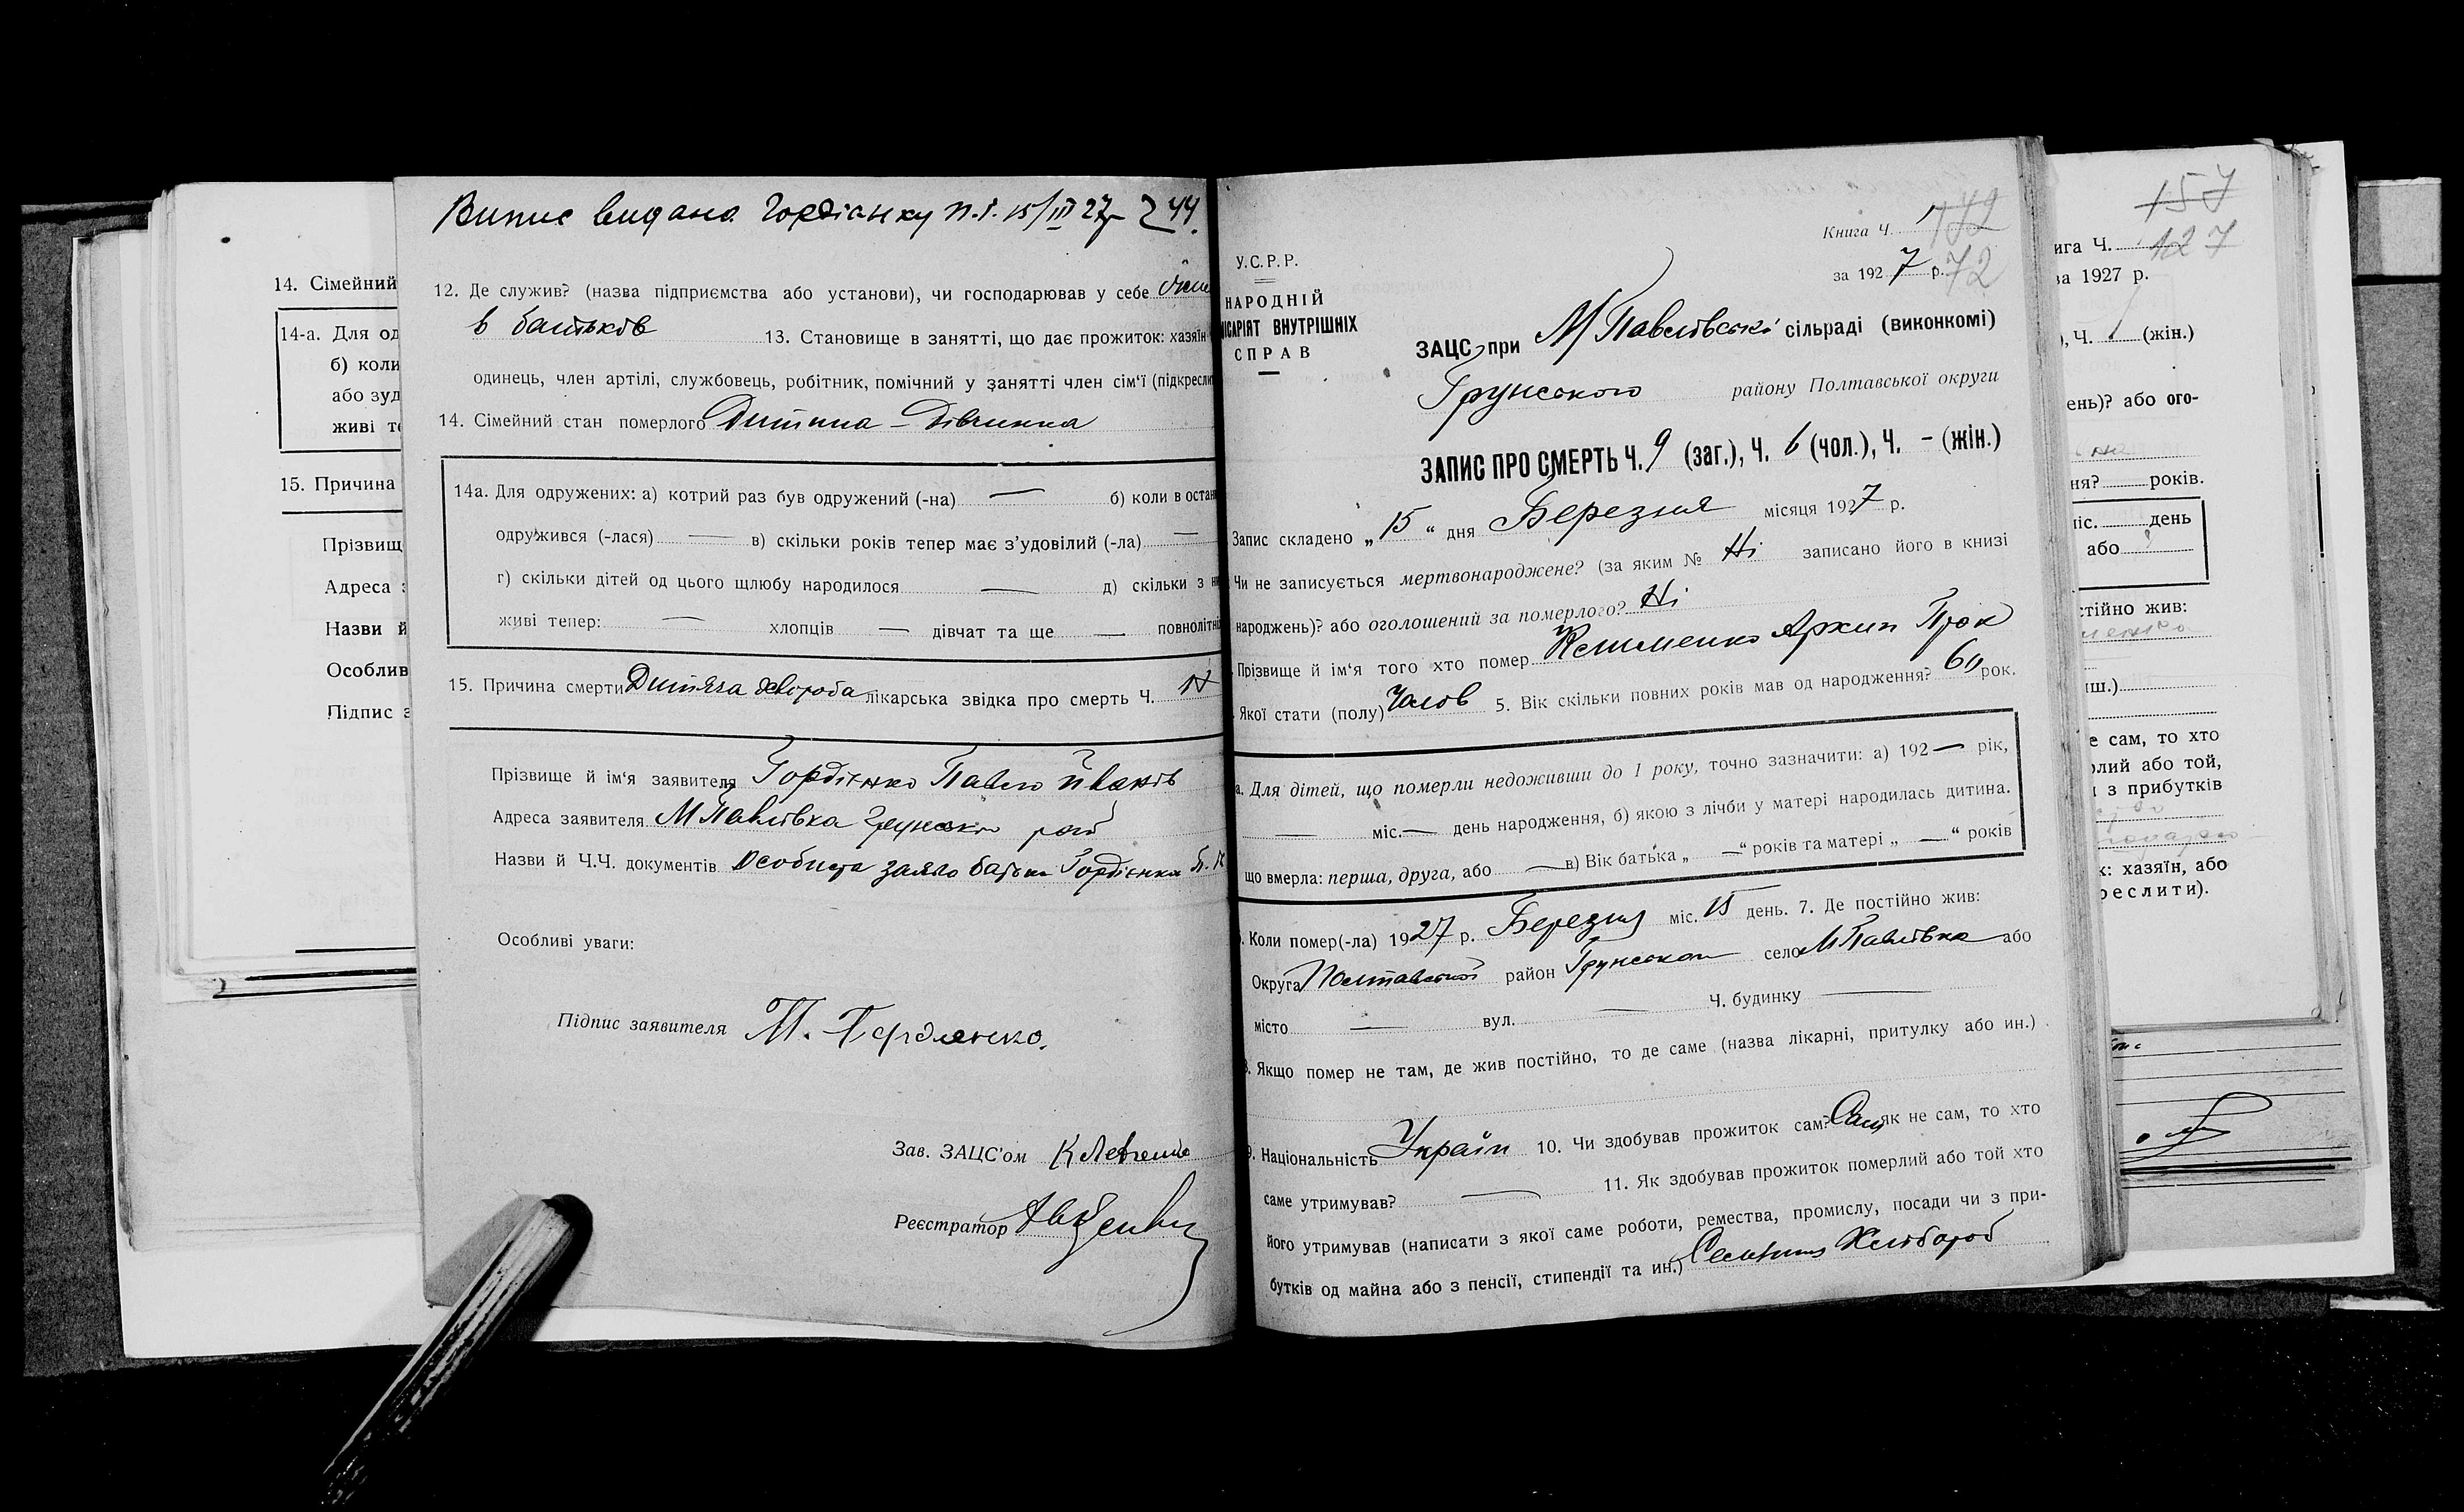 14. Сімейний
14-а. Для од
б) коли
або зуд
живі т
15. Причина
Прізвищ
Адреса з
Назви й
Особлив
Підпис з
Випис видано Гордіэнку П. І. 15/III 27р 244.
12. Де служив? (назва підприємства або установи), чи господарював у себе
в батьків 13. Становище в занятті, що дає прожиток: хазяїн
одинець, член артілі, службовець, робітник, помічний у занятті член сім'ї (підкресли
14. Сімейний стан померлого Дитина – Дівчинка
14а. Для одружених: а) котрий раз був одружений (-на) — б) коли в остан
одружився (-лася) — в) скільки років тепер має з'удовілий (-ла) —
г) скільки дітей од цього щлюбу народилося — д) скільки з ни
живі тепер: — хлопців — дівчат та ще — повнолітні
15. Причина смерти Дитяча хвороба лікарська звідка про смерть Ч.
Прізвище й ім'я заявителя Гордієнко Павло Іванів
Адреса заявителя МПавлівка Грунсько рай
Назви й Ч.Ч. документів Особиста заява батька Гордієнка
Особливі уваги:
Підпис заявителя П. Гордиенко.
Зав. ЗАЦС'ом К Левченко
Реєстратор
Книга Ч. 1 172
за 1927 р. 72
У.С.Р.Р.
НАРОДНІЙ
ІСАРІЯТ ВНУТРІШНІХ
СПРАВ
ЗАЦС при М/Павлівські сільраді (виконкомі)
Грунського району Полтавської округи
ЗАПИС ПРО СМЕРТЬ Ч. 9 (заг.), Ч. 6 (чол.), Ч. – (жін.)
Запис складено „15“ дня Березня місяця 1927 р.
Чи не записується мертвонароджене? (за яким № Ні записано його в книзі
народжень)? або оголошений за померлого? Ні
Прізвище й ім'я того хто помер Клименко Архип Прок
Якої стати (полу) Чолов 5. Вік скільки повних років мав од народження? 60 рок.
а. Для дітей, що померли недоживши до 1 року, точно зазначити: а) 192— рік,
— міс. — день народження, б) якою з лічби у матері народилась дитина.
що вмерла: перша, друга, або — в) Вік батька „ —“ років та матері „ —“ років
Коли помер(-ла) 1927 р. Березня міс. 15 день. 7. Де постійно жив:
Округа Полтавської район Грунськой село МПавлівка або
місто — вул. — Ч. будинку —
8. Якщо помер не там, де жив постійно, то де саме (назва лікарні, притулку або ин.)
9. Національність Україн 10. Чи здобував прожиток сам? Сам як не сам, то хто
саме утримував? — 11. Як здобував прожиток померлий або той хто
його утримував (написати з якої саме роботи, ремества, промислу, посади чи з при-
бутків од майна або з пенсії, стипендії та ин.) Хлібороб
157
ига Ч. 127
за 1927 р.
), Ч. (жін.)
ень)? або ого-
ня? років.
міс. день
або
стійно жив:
иш.)
е сам, то хто
рлий або той,
и з прибутків
к: хазяїн, або
реслити).